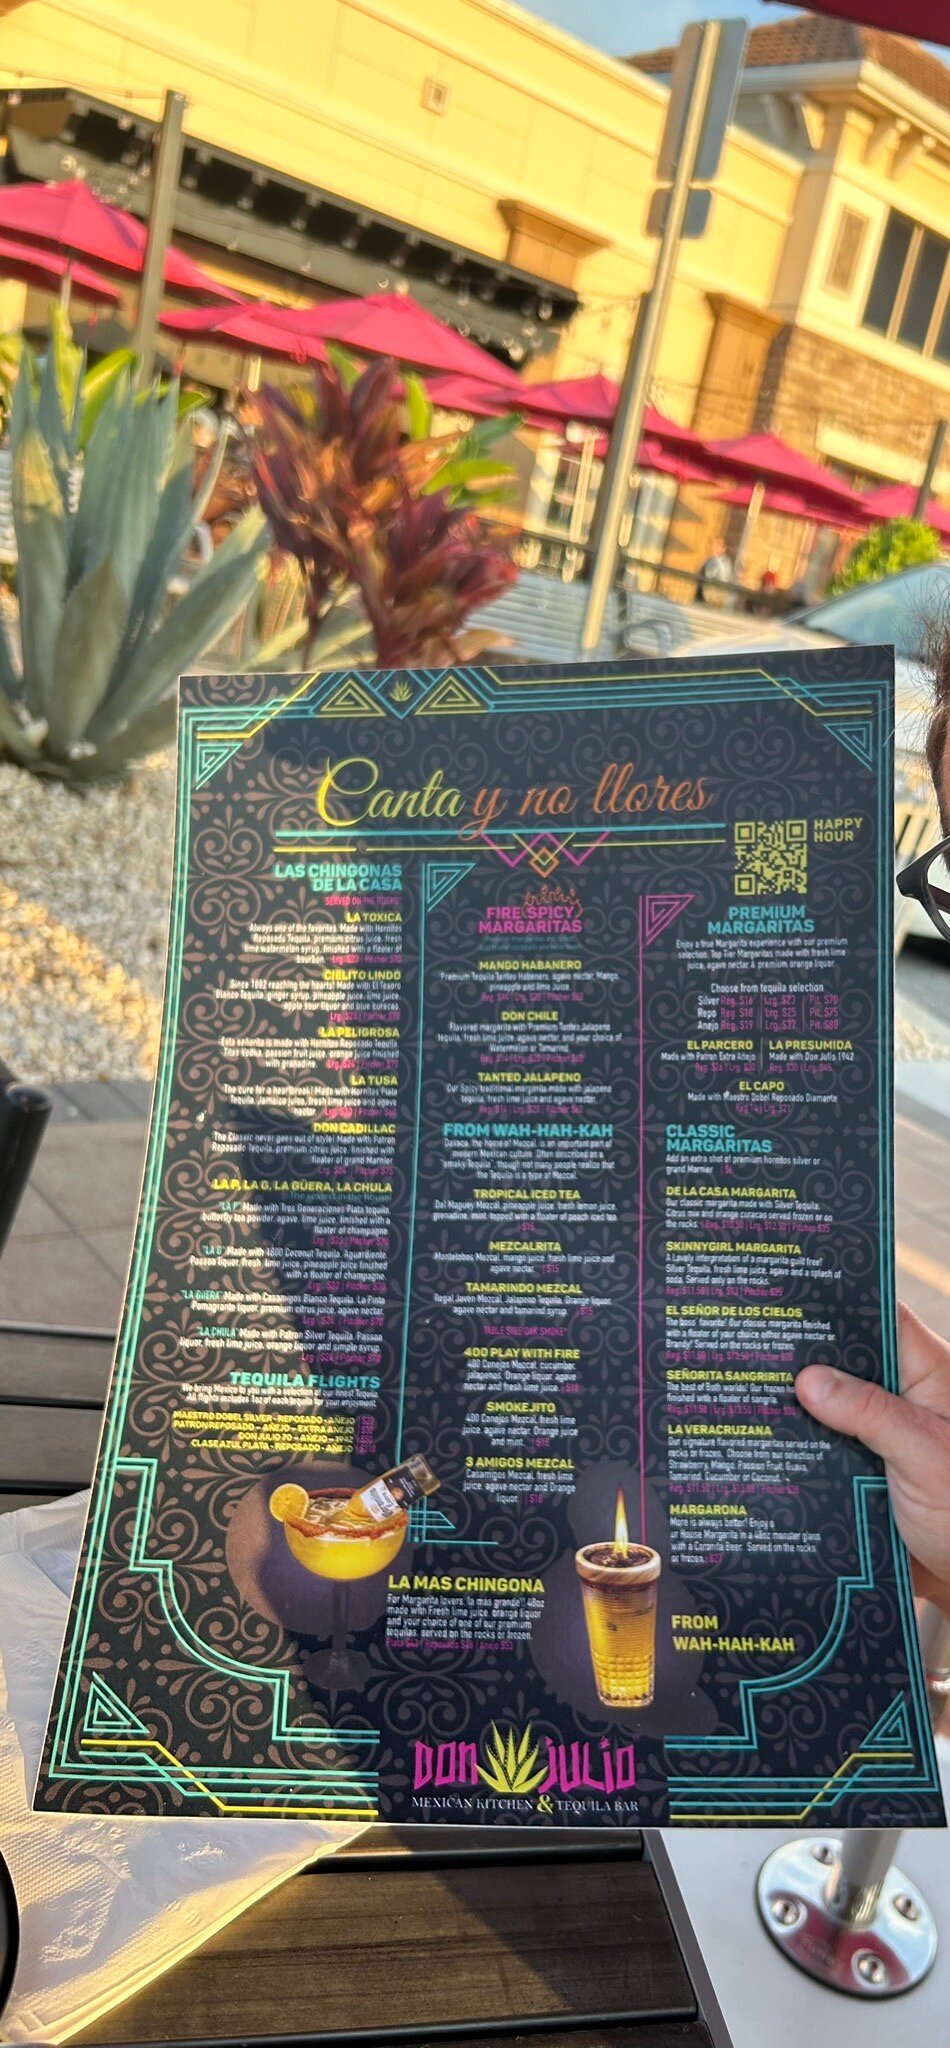 Canta y no llores
HAPPY
HOUR
LAS CHINGONAS
DE LA CASA
SERVED ON THE ROCKS*
LA TOXICA
Always one of the favorites. Made with Hornitos
Reposado Tequila, premium citrus juice, fresh
lime watermelon syrup, finished with a floater of
bourbon. Lrg. $23 | Pitcher $70
CIELITO LINDO
Since 1882 reaching the hearts! Made with El Tesoro
Blanco Tequila, ginger syrup, pineapple juice, lime juice,
apple sour liquor and blue curacao.
Lrg. $23 | Pitcher $70
LA PELIGROSA
Esta señorita is made with Hornitos Reposado Tequila
Titos Vodka, passion fruit juice, orange juice finished
with grenadine. Lrg. $24 | Pitcher $70
LA TUSA
The cure for a heartbreak! Made with Hornitos Plata
Tequila, Jamaica juice, fresh lime juice and agave
nectar. Lrg. | Pitcher
DON CADILLAC
The Classic never goes out of style! Made with Patron
Reposado Tequila, premium citrus juice, finished with
floater of grand Marnier.
Lrg. $24 | Pitcher $75
LA P, LA G, LA GÜERA, LA CHULA
"LA P" Made with Tres Generaciones Plata tequila,
butterfly tea powder, agave, lime juice, finished with a
floater of champagne.
Lrg. $23 | Pitcher $70
"LA G" Made with 1800 Coconut Tequila, Aguardiente,
Passoa liquor, fresh lime juice, pineapple juice finished
with a floater of champagne
Lrg. | Pitcher $70
"LA GÜERA" Made with Casamigos Blanco Tequila, La Pinta
Pomagrante liquor, premium citrus juice, agave nectar.
Lrg. $24 | Pitcher $70
"LA CHULA" Made with Patron Silver Tequila, Passoa
liquor, fresh lime juice, orange liquor and simple syrup.
Lrg. $24 | Pitcher
TEQUILA FLIGHTS
We bring Mexico to you with a selection of our finest Tequila.
All flights includes 1oz of each tequila for your enjoyment.
MAESTRO DOBEL SILVER - REPOSADO - AÑEJO |
PATRON REPOSADO - AÑEJO - EXTRA AÑEJO |
DON JULIO 70 - AÑEJO - 1942 |
CLASE AZUL PLATA - REPOSADO - AÑEJO |
FIRE SPICY
MARGARITAS
MANGO HABANERO
Premium Tequila Tanteo Habanero, agave nectar, Mango,
pineapple and lime Juice.
Reg. $14 | Lrg. $20 | Pitcher $60
DON CHILE
Flavored margarita with Premium Tanteo Jalapeno
tequila, fresh lime juice, agave nectar, and your choice of
Watermelon or Tamarind.
Reg. $14 | Lrg. $20 | Pitcher $60
TANTEO JALAPENO
Our Spicy traditional margarita made with jalapeno
tequila, fresh lime juice and agave nectar.
Reg. $14 | Lrg. $20 | Pitcher $60
FROM WAH-HAH-KAH
Oaxaca, the home of Mezcal, is an important part of
modern Mexican culture. Often described as a
"smoky Tequila", though not many people realize that
the Tequila is a type of Mezcal.
TROPICAL ICED TEA
Del Maguey Mezcal, pineapple juice, fresh lemon juice,
grenadine, mint, topped with a floater of peach iced tea
MEZCALRITA
Montelobos Mezcal, mango juice, fresh lime juice and
agave nectar. | $15
TAMARINDO MEZCAL
Ilegal Joven Mezcal, Jalapeno Tequila, Orange liquor,
agave nectar and tamarind syrup. | $15
TABLE SIDE OAK SMOKE*
400 PLAY WITH FIRE
400 Conejos Mezcal, cucumber,
jalapenos, Orange liquor, agave
nectar and fresh lime juice. | $18
SMOKEJITO
400 Conejos Mezcal, fresh lime
juice, agave nectar, Orange
and mint. | $18
3 AMIGOS MEZCAL
Casamigos Mezcal, fresh lime
juice, agave nectar and Orange
liquor. | $18
PREMIUM
MARGARITAS
Enjoy a true Margarita experience with our premium
selection. Top Tier Margaritas made with fresh lime
juice, agave nectar & premium orange liquor.
Choose from tequila selection
Silver Reg. $16 | Lrg. $23 | Pit. $70
Repo Reg. $18 | Lrg. $25 | Pit. $75
Anejo Reg. $19 | Lrg. $27 | Pit. $80
EL PARCERO
Made with Patron Extra Añejo
Reg. $26 | Lrg. $40
LA PRESUMIDA
Made with Don Julio 1942
Reg. $30 | Lrg. $45
EL CAPO
Made with Maestro Dobel Reposado Diamante
Reg. 14 | Lrg. $21
CLASSIC
MARGARITAS
Add an extra shot of premium hornitos silver or
grand Marnier | $6
DE LA CASA MARGARITA
Our classic margarita made with Silver Tequila,
Citrus mix and orange curacao served frozen or on
the rocks. | Reg. $10.50 | Lrg. $12.50 | Pitcher $35
SKINNYGIRL MARGARITA
A Lovely interpretation of a margarita guilt free!
Silver Tequila, fresh lime juice, agave and a splash of
soda. Served only on the rocks.
Reg. $11.50 | Lrg. $13 | Pitcher $35
EL SEÑOR DE LOS CIELOS
The boss' favorite! Our classic margarita finished
with a floater of your choice either agave nectar or
Brandy! Served on the rocks or frozen.
Reg. $11.50 | Lrg. $13.50 | Pitcher
SEÑORITA SANGRIRITA
The best of Both worlds! Our frozen ho
finished with a floater of sangria.
Reg. $11.50 | Lrg. $13.50 | Pitcher
LA VERACRUZANA
Our signature flavored margaritas served on the
rocks or frozen. Choose from our selection of
Strawberry, Mango, Passion Fruit, Guava,
Tamarind, Cucumber or Coconut.
Reg. $11.50 | Lrg. $13.50 | Pitcher
MARGARONA
More is always better! Enjoy o
ur House Margarita in a 48oz monster glass
with a Coronita Beer. Served on the rocks
or frozen. | $27
LA MAS CHINGONA
For Margarita lovers, la mas grande!! 48oz
made with Fresh lime juice, orange liquor
and your choice of one of our premium
tequilas, served on the rocks or frozen.
Plata $43 | Reposado $48 | Anejo $53
FROM
WAH-HAH-KAH
DON JULIO
MEXICAN KITCHEN & TEQUILA BAR